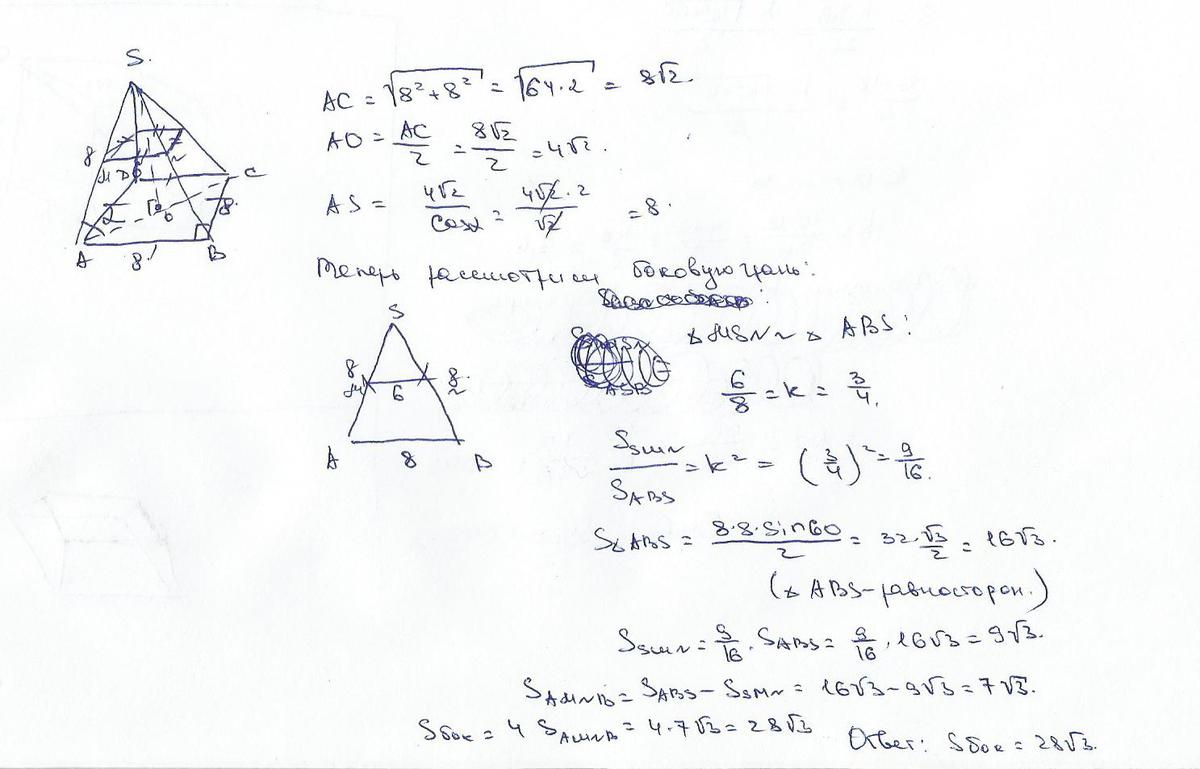 S.
8
M D N C
L O 8.
A 8 B
AC = √(8²+8²) = √(64·2) = 8√2.
AO = AC/2 = 8√2/2 = 4√2.
AS = 4√2/cosα = 4√2·2/√2 = 8.
Теперь рассмотрим боковую грань:
S
8 8.
M 6 N
A 8 B
△MSN ~ △ABS:
6/8 = k = 3/4.
S_SMN/S_ABS = k² = (3/4)² = 9/16.
S△ABS = 8·8·sin60/2 = 32·√3/2 = 16√3.
(△ABS-равносторон.)
S_SMN = 9/16 · S_ABS = 9/16 · 16√3 = 9√3.
S_AMNB = S_ABS - S_SMN = 16√3 - 9√3 = 7√3.
Sбок = 4 S_AMNB = 4·7√3 = 28√3
Ответ: Sбок = 28√3.